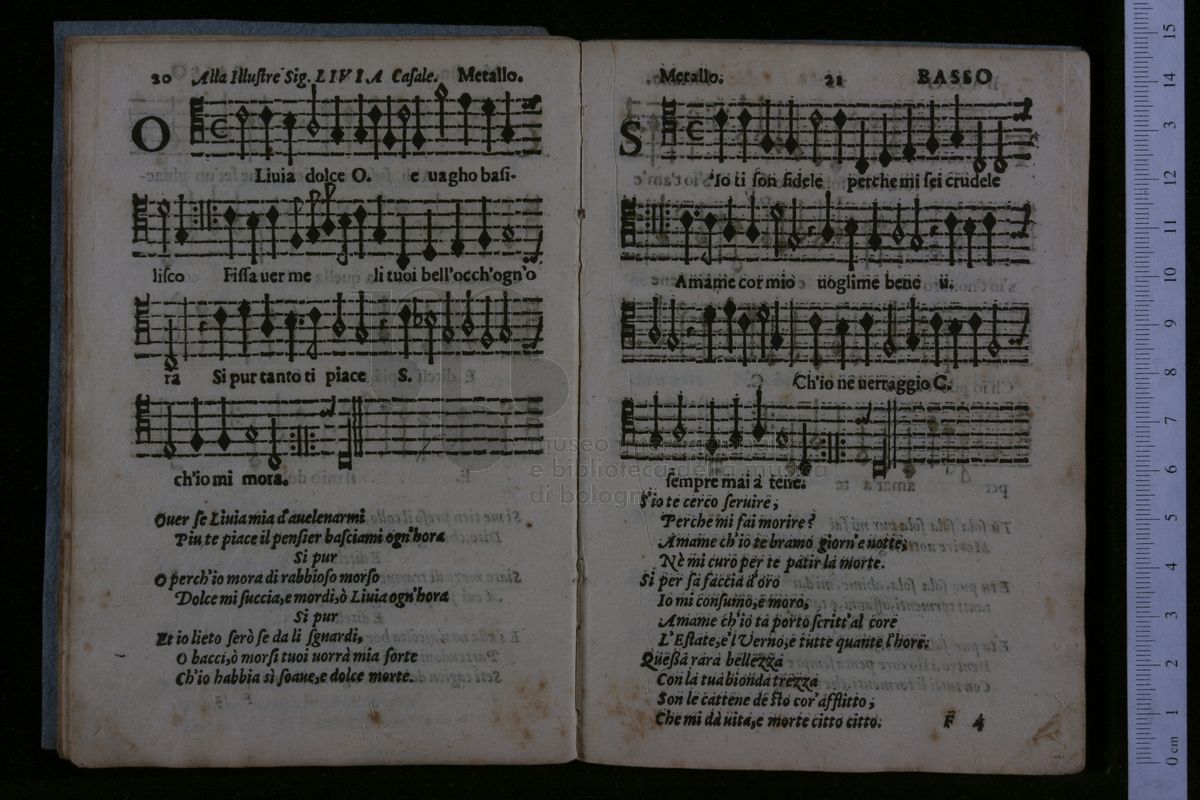 20 Alla Illustre Sig. LIVIA Casale. Metallo.
O Liuia dolce O. e uagho basi-
lisco Fissa uer me li tuoi bell'occh'ogn'o
ra Si pur tanto ti piace S.
ch'io mi mora.
Ouer se Liuia mia d'auelenarmi
Piu te piace il pensier basciami ogn'hora
Si pur
O perch'io mora di rabbioso morso
Dolce mi succia, e mordi, ò Liuia ogn'hora
Si pur
Et io lieto serò se da li sgnardi,
O bacci, ò morsi tuoi uorrà mia sorte
Ch'io habbia sì soaue, e dolce morte.
Metallo. 21 BASSO
S 'Io ti son fidele perche mi sei crudele
Amame cor mio uoglime bene ii.
Ch'io ne uerraggio C.
sempre mai a tene.
S'io te cerco seruire,
Perche mi fai morire?
Amame ch'io te bramo giorn'e notte;
Nè mi curo per te patir la morte.
Si per sa faccia d'oro
Io mi consumo, e moro,
Amame ch'io ta porto scritt'al core
L'Estate, e l'Verno, e tutte quante l'hore.
Questa rara bellezza
Con la tua bionda trezza
Son le cattene de sto cor'afflitto,
Che mi dà uita, e morte citto citto.
F 4
museo
e biblioteca della musica
di bologna
0 cm 1 2 3 4 5 6 7 8 9 10 11 12 13 14 15